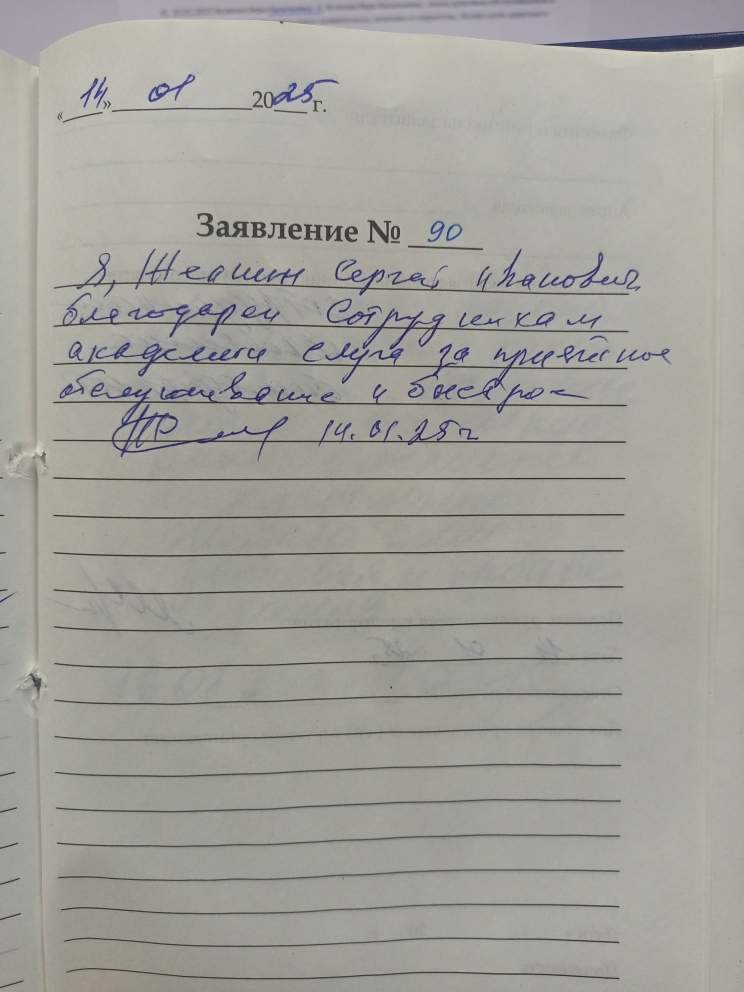 «14» 01 2025 г.
Заявление № 90
Я, Сергей Иванович
благодарен Сотрудникам
академии слуха за приятное
обслуживание и быстрое
14.01.25г